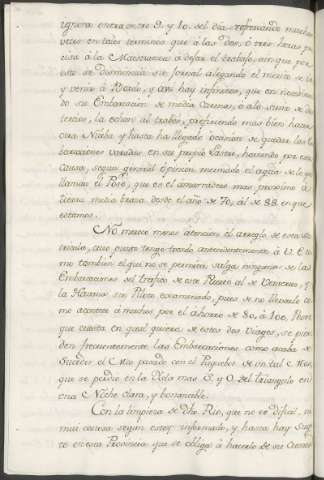 entra entre 9. y 10. del dia refrescando muchas
veces en tales terminos que á las dos, ó tres horas pre-
cisa á la Maestranza á dejar el trabajo, sin que por
esto se disminuia su jornal alegando el merito de ir
y venir á Bordo, y aun hay infinitos, que en necesitan-
do su Embarcacion de media Carena, ó alo sumo de dos
tercios, la echan al traves, prefiriendo mas bien hacer
otra Nueba y hasta ha llegado ocasion de quedar las Em-
barcaciones varadas en su propio Lastre, haviendo por esta
causa, segun general opinion menguado el agua de lo que
llaman el Pozo, que es el amarradero mas proximo á
tierra media braza desde el año de 70. al de 88. en que
estamos.
No merece menos atencion el arreglo de este
que punto tengo tocado antecedentemente á V. E. co-
mo tambien el que no se permita salga ninguna de las
Embarcaciones del trafico de este Puerto al de Veracruz y
la Havana sin Piloto examinado, pues de no llevarlo co-
mo acontece á muchos por el ahorro de 80. á 100. Pesos
que cuesta en qual quiera de estos dos Viages, se pier-
den frequentemente las Embarcaciones como acaba de
suceder el Mes pasado con el Paquebot de
que se perdio en la Isla mas S. y O. del Triangulo en
una Noche clara, y bonancible.
Con la limpieza de dho Rio, que no es dificil, ni
mui costosa segun estoy informado, y hasta hay Suge-
to en esta Provincia que se obliga á hacerlo de su Cuenta